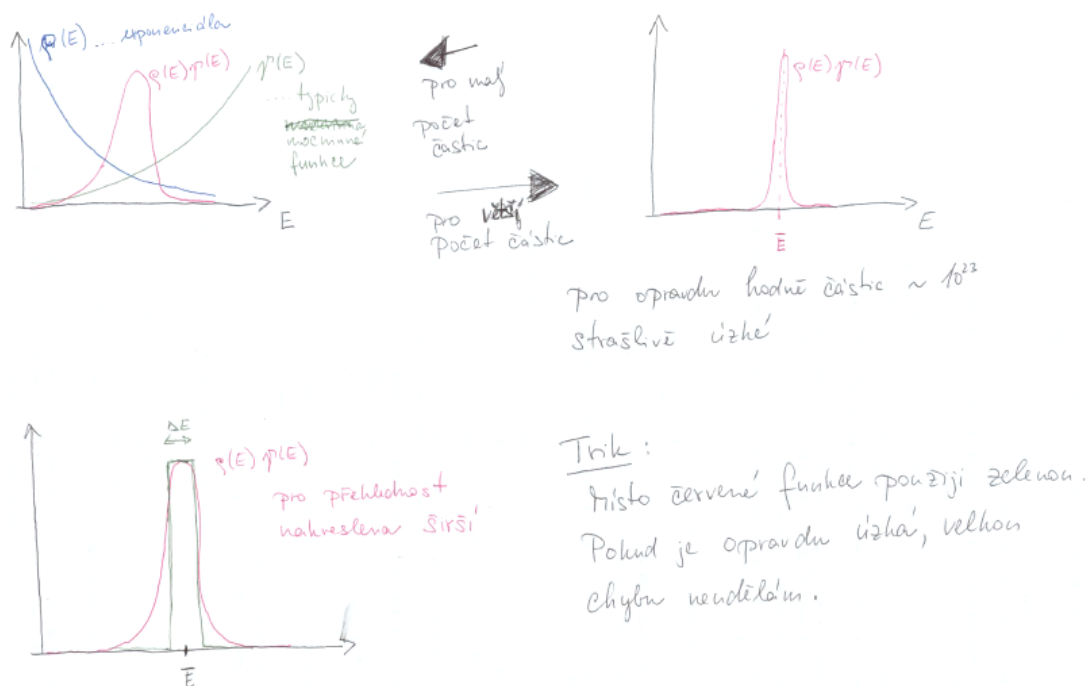 ρ(E) .... exponenciála
ρ(E)γ(E)
γ(E)
.... typicky
mocninné
funkce
E
pro malý
počet
částic
pro větší
počet částic
ρ(E)γ(E)
E
Ē
pro opravdu hodně částic ~ 10²³
strašlivě úzké
ΔE
ρ(E)γ(E)
pro přehlednost
nakreslena širší
Ē
Trik :
Místo červené funkce použiji zelenou.
Pokud je opravdu úzká, velkou
chybu neudělám.